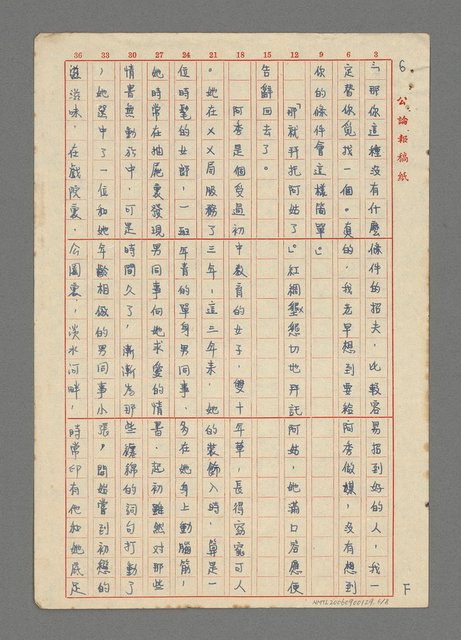 6.
公論報稿紙
「那你這種沒有什麼條件的招夫，比較容易招到好的人，我一
定替你覓找一個。真的，我老早想到要給阿秀做媒，沒有想到
你的條件會這樣簡單。」
「那就拜托阿姑了。」紅綢懇懇切切地拜託阿姑，她滿口答應便
告辭回去了。
阿秀是個受過初中教育的女子，雙十年華，長得窈窕可人
。她在××局服務了三年，這三年來，她的裝飾入時，算是一
位時髦的女郎，一班年青的單身男同事，多在她身上動腦筋，
她時常在抽屜裏發現男同事向她求愛的情書。起初雖然對那些
情書無動於中，可是時間久了，漸漸為那些纏綿的詞句打動了
，她愛中了一位和她年齡相倣的男同事小張，開始嘗到初戀的
滋味，在戲院裏，公園裏，淡水河畔，時常印有他和她屐足
3 6 9 12 15 18 21 24 27 30 33 36
F
NMTL20060900129 6/8